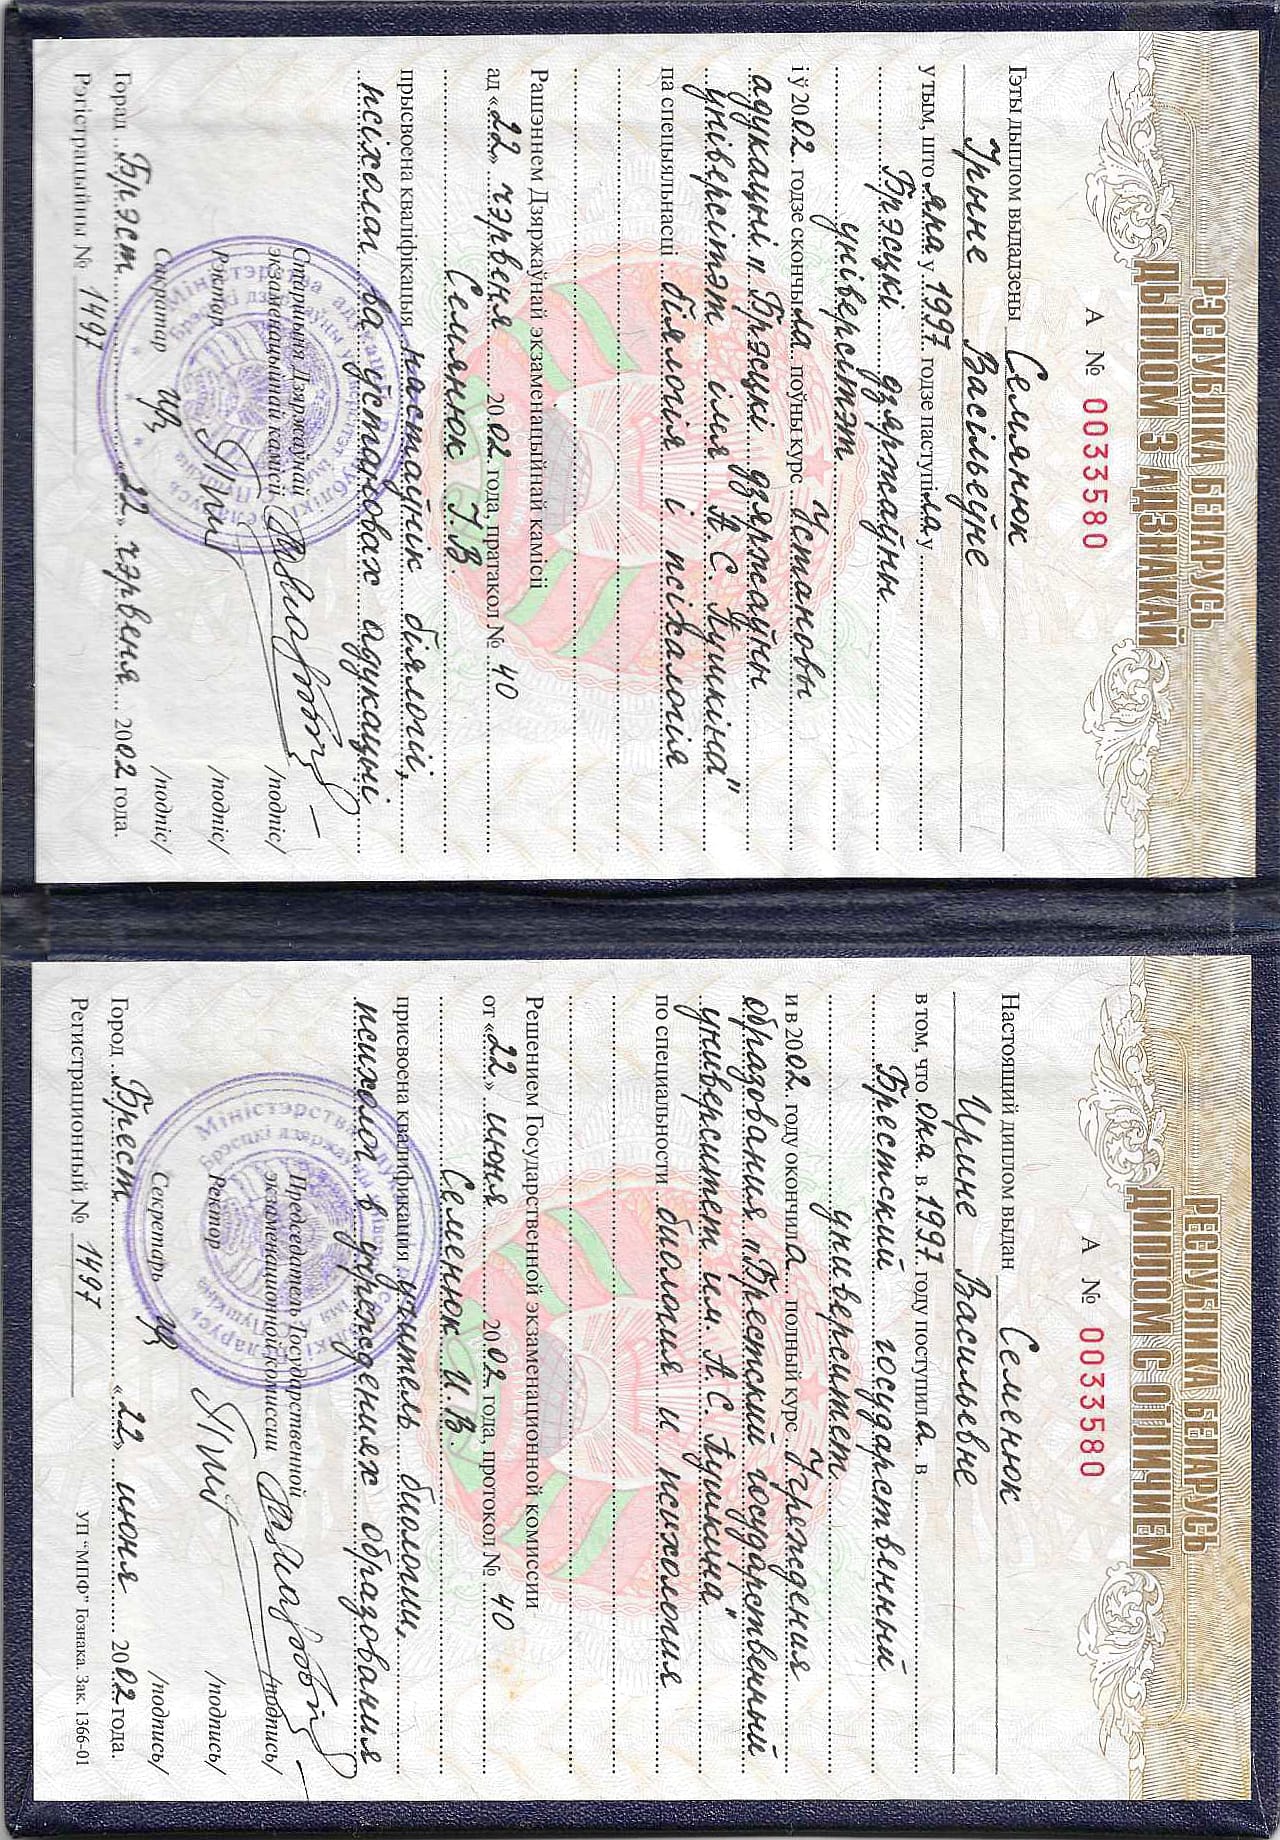 РЭСПУБЛІКА БЕЛАРУСЬ
ДЫПЛОМ З АДЗНАКАЙ
А № 0033580
Гэты дыплом выдадзены Семянюк
Ірыне Васільеўне
у тым, што яна у 1997 годзе паступіла у
Брэсцкі дзяржаўны
універсітэт
і ў 2002 годзе скончыла поўны курс Установы
адукацыі „Брэсцкі дзяржаўны
універсітэт імя А.С. Пушкіна"
па спецыяльнасці біялогія і псіхалогія
Рашэннем Дзяржаўнай экзаменацыйнай камісіі
ад «22» чэрвеня 2002 года, пратакол № 40
Семянюк І.В.
прысвоена кваліфікацыя настаўнік біялогіі,
псіхолаг ва ўстановах адукацыі
Старшыня Дзяржаўнай
экзаменацыйнай камісіі /подпіс/
Рэктар /подпіс/
Сакратар /подпіс/
Горад Брэст «22» чэрвеня 2002 года.
Рэгістрацыйны № 1497
РЕСПУБЛИКА БЕЛАРУСЬ
ДИПЛОМ С ОТЛИЧИЕМ
А № 0033580
Настоящий диплом выдан Семенюк
Ирине Васильевне
в том, что она в 1997 году поступила в
Брестский государственный
университет
и в 2002 году окончила полный курс Учреждения
образования „Брестский государственный
университет им. А.С. Пушкина"
по специальности биология и психология
Решением Государственной экзаменационной комиссии
от «22» июня 2002 года, протокол № 40
Семенюк И.В.
присвоена квалификация учитель биологии,
психолог в учреждениях образования
Председатель Государственной
экзаменационной комиссии /подпись/
Ректор /подпись/
Секретарь /подпись/
Город Брест «22» июня 2002 года.
Регистрационный № 1497
УП "МПФ" Гознака. Зак. 1366-01